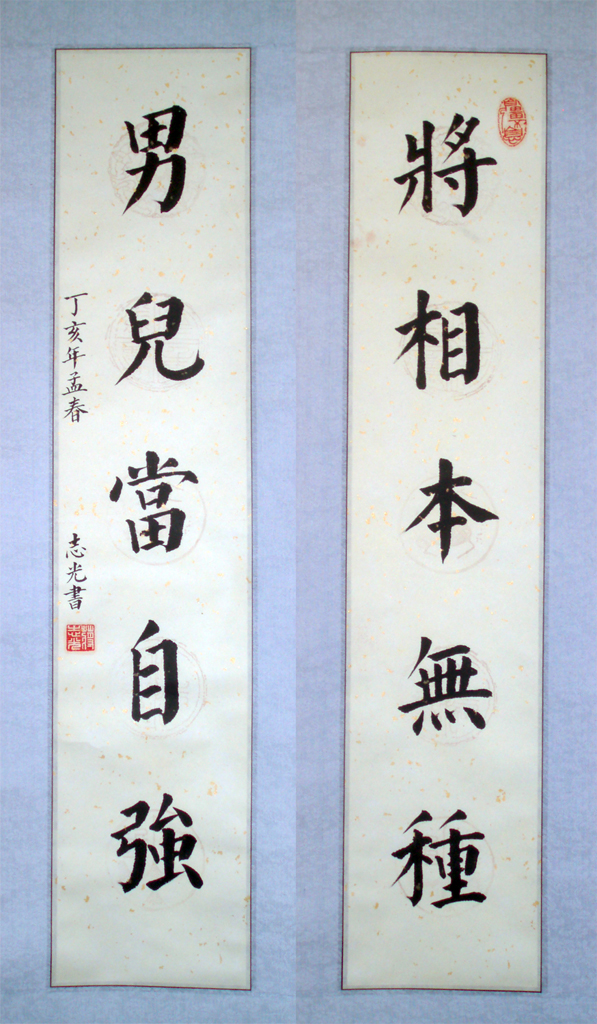 將相本無種
男兒當自強
丁亥年孟春
志光書